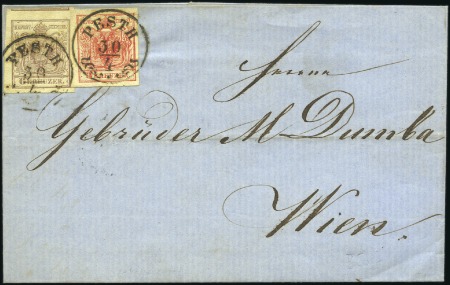 PESTH
30
PESTH
30
Herrn
Gebrüder M. Dumba
Wien